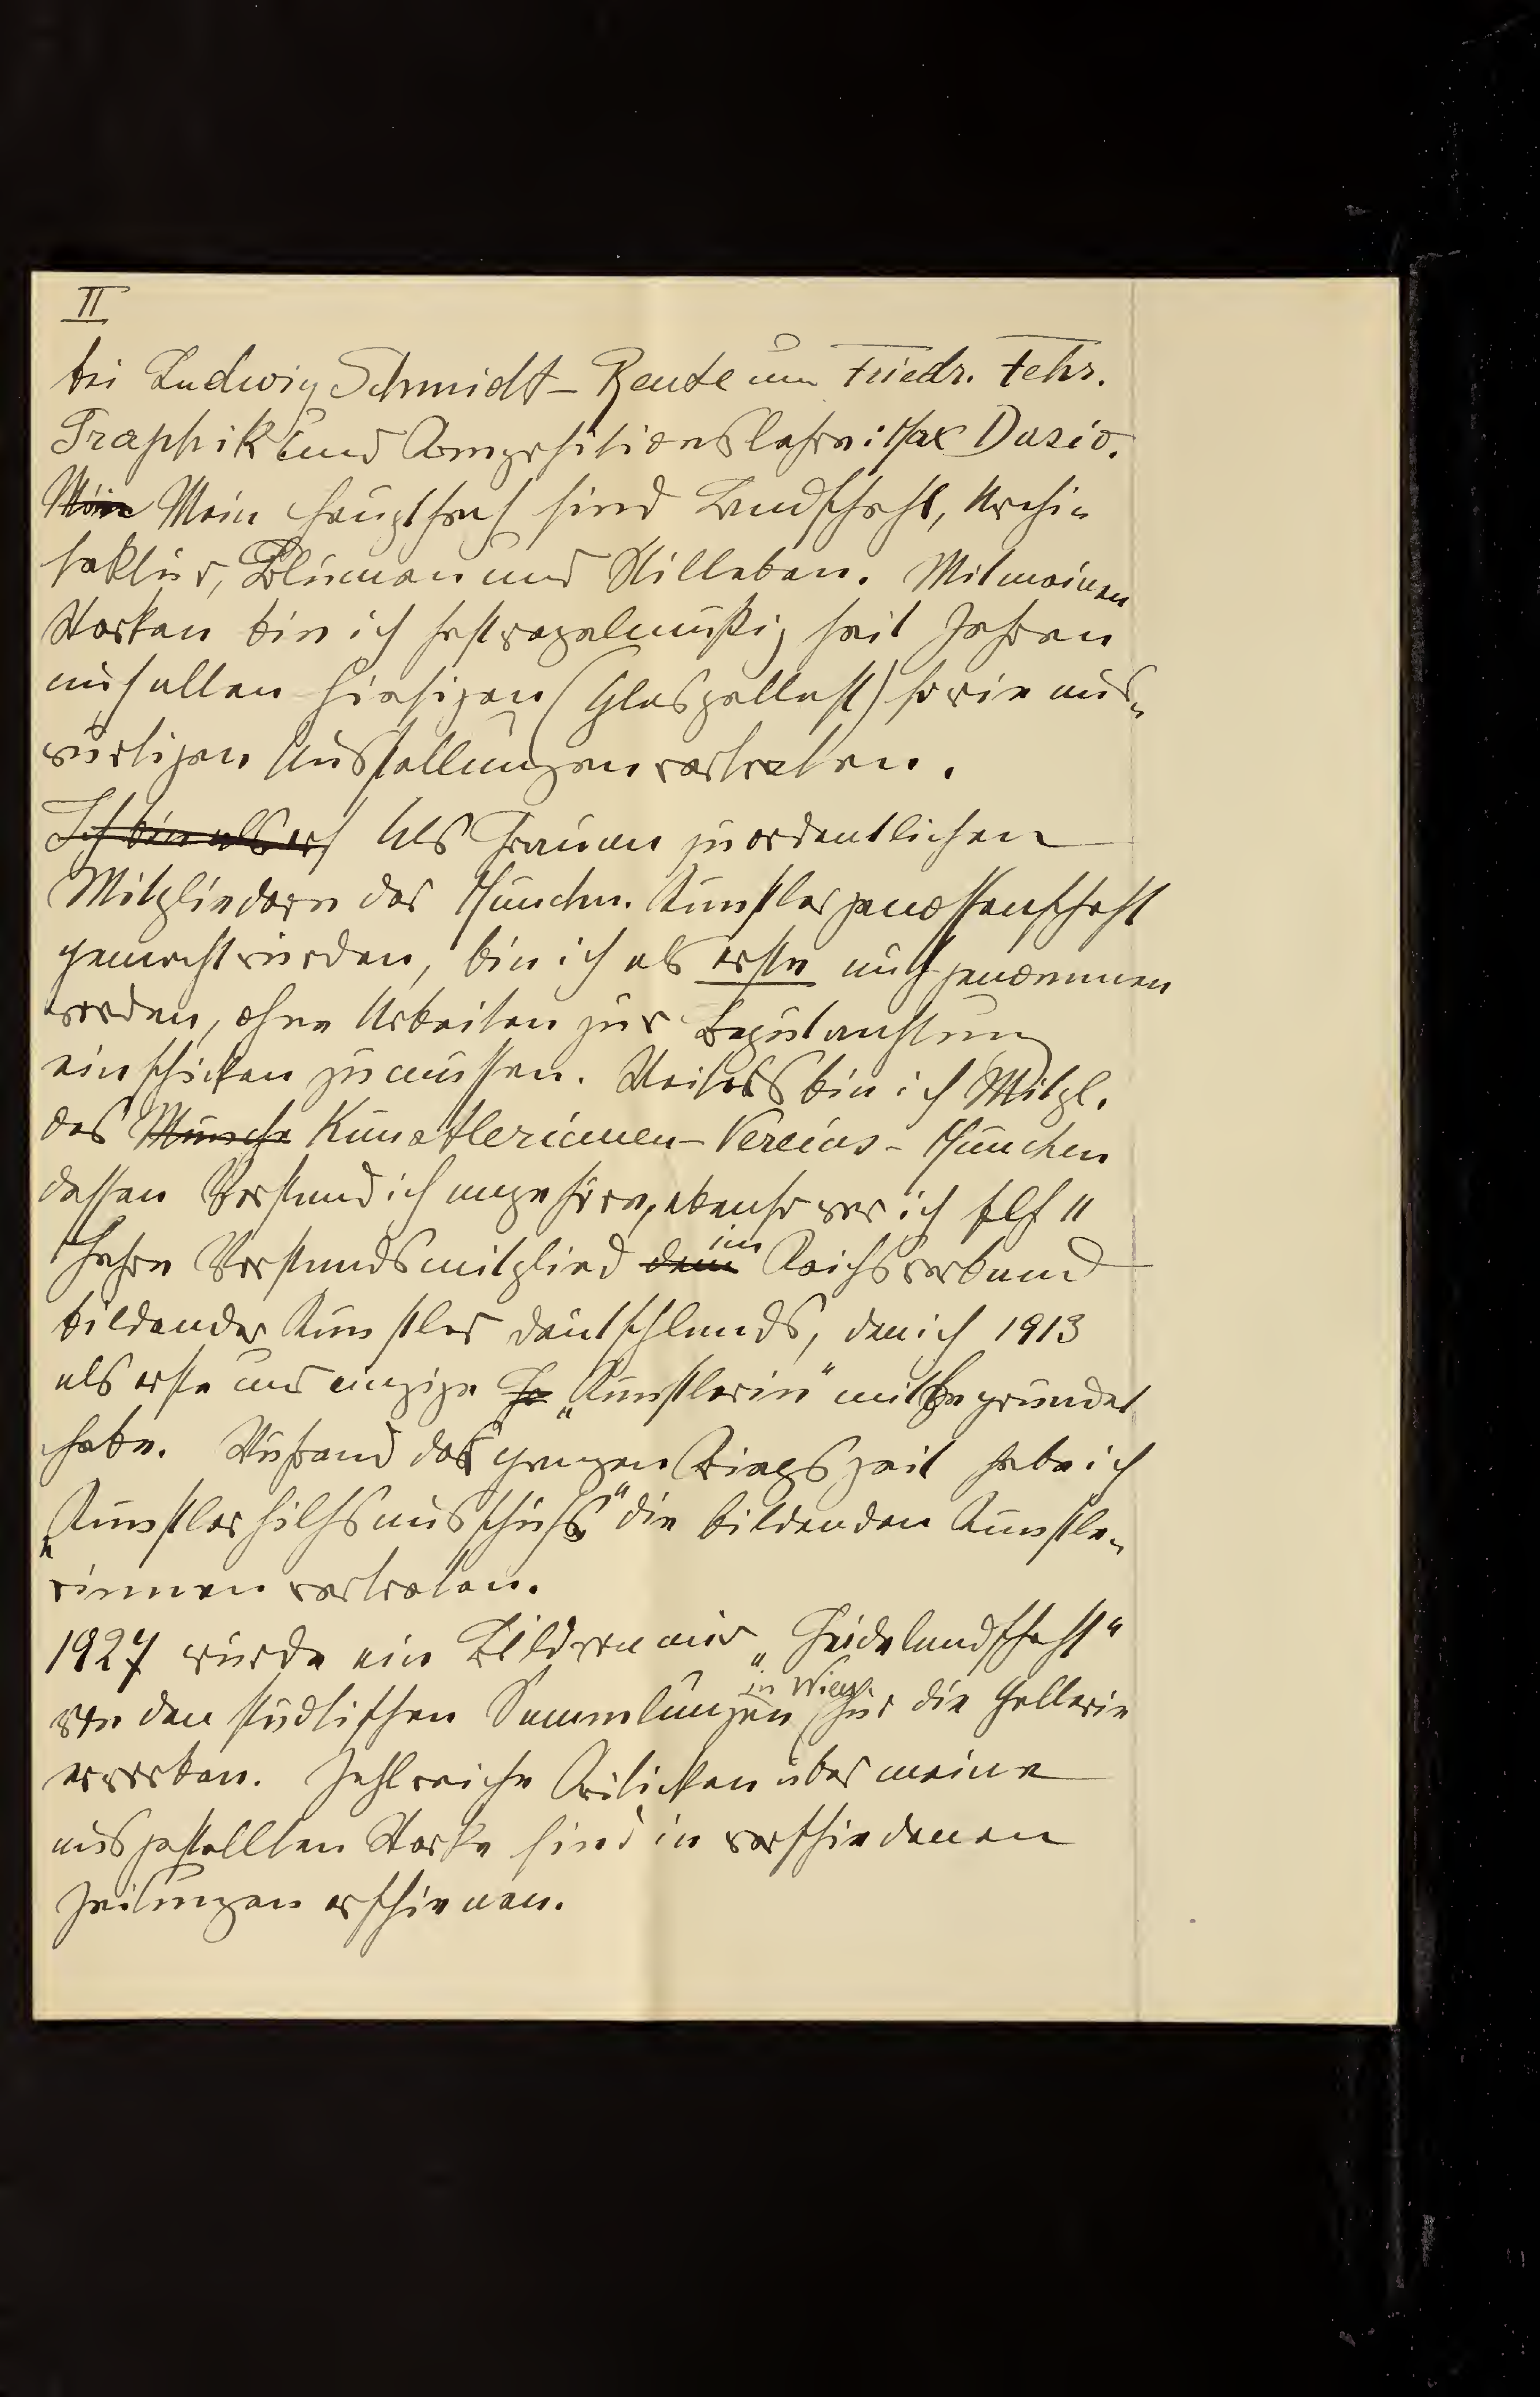 II
bei Ludwig Schmidt-Reute und Friedr. Fehr.
Graphik und Kompositionslehre: Max Dasio.
Mein Mein Hauptfach sind Landschaft, Archi-
tektur, Blumen und Stilleben. Mit meinen
Werken bin ich fast regelmäßig seit Jahren
auf allen hiesigen (Glaspallast) sowie aus-
wärtigen Ausstellungen vertreten.
Ich bin als er Als Frauen zu ordentlichen
Mitgliedern der Münchn. Künstlergenossenschaft
gemacht wurden, bin ich als erste aufgenommen
worden, ohne Arbeiten zur Begutachtung
einschicken zu müssen. Weiters bin ich Mitgl.
des Münche Künstlerinnen-Vereins-München
dessen Vorstand ich angehöre, ebenso war ich elf 11
Jahre Vorstandsmitglied dem im Reichsverband
bildender Künstler Deutschlands, den ich 1913
als erste und einzige „Künstlerin" mitbegründet
habe. Während der ganzen Kriegszeit habe ich
„Künstlerhilfsausschuß" die bildenden Künstle-
rinnen vertreten.
1927 wurde ein Bild von mir „Heidelandschaft"
von den städtischen Sammlungen in Wien für die Gallerie
erworben. Zahlreiche Kritiken über meine
ausgestellten Werke sind in verschiedenen
Zeitungen erschienen.